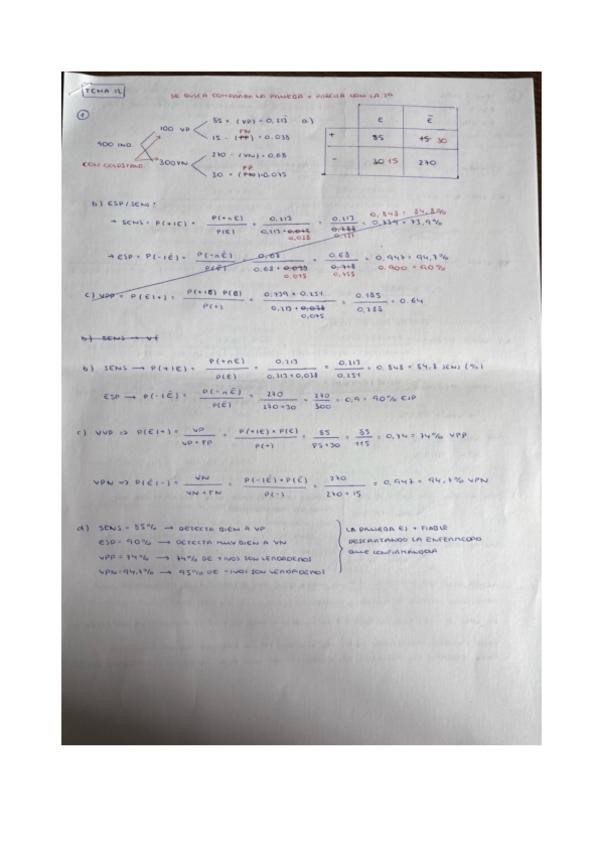 TEMA 12
SE BUSCA COMPARAR LA PRUEBA + SENCILLA CON LA
1
400 IND.
CON GOLDSTAND.
100 VP
85 + (VP) = 0,213 a)
FN
15 - (FP) = 0.038
300 VN
270 - (VN) = 0,68
FP
30 + (FN) = 0.075
E Ē
+ 85 15 30
- 30 15 270
b) ESP/SENS?
→ SENS = P(+|E) = P(+∩E) / P(E) = 0,213 / 0,213 + 0,075 0,038 = 0,213 / 0,288 0,251 = 0,739 = 73,9% 0,848 = 84,8%
→ ESP = P(-|Ē) = P(-∩Ē) / P(Ē) = 0,68 / 0.68 + 0,038 0,075 = 0.68 / 0,718 0,755 = 0,947 = 94,7% 0,900 = 90%
c) VPP = P(E|+) = P(+|E) P(E) / P(+) = 0,739 × 0.251 / 0,213 + 0,038 0,075 = 0.185 / 0,288 = 0.64
b) SENS → V(
b) SENS → P(+|E) = P(+∩E) / P(E) = 0,213 / 0,213 + 0,038 = 0,213 / 0,251 = 0,848 = 84,8 SENS (%)
ESP → P(-|Ē) = P(-∩Ē) / P(Ē) = 270 / 270+30 = 270 / 300 = 0,9 = 90% ESP
c) VVP => P(E|+) = VP / VP+FP = P(+|E)×P(E) / P(+) = 85 / 85+30 = 85 / 115 = 0,74 = 74% VPP
VPN => P(Ē|-) = VN / VN+FN = P(-|Ē)×P(Ē) / P(-) = 270 / 270+15 = 0,947 = 94,7% VPN
d) SENS = 85% → DETECTA BIEN A VP
ESP = 90% → DETECTA MUY BIEN A VN
VPP = 74% → 74% DE +IVOS SON VERDADEROS
VPN = 94,7% → 95% DE -IVOS SON VERDADEROS
LA PRUEBA ES + FIABLE
DESCARTANDO LA ENFERMEDAD
QUE CONFIRMANDOLA